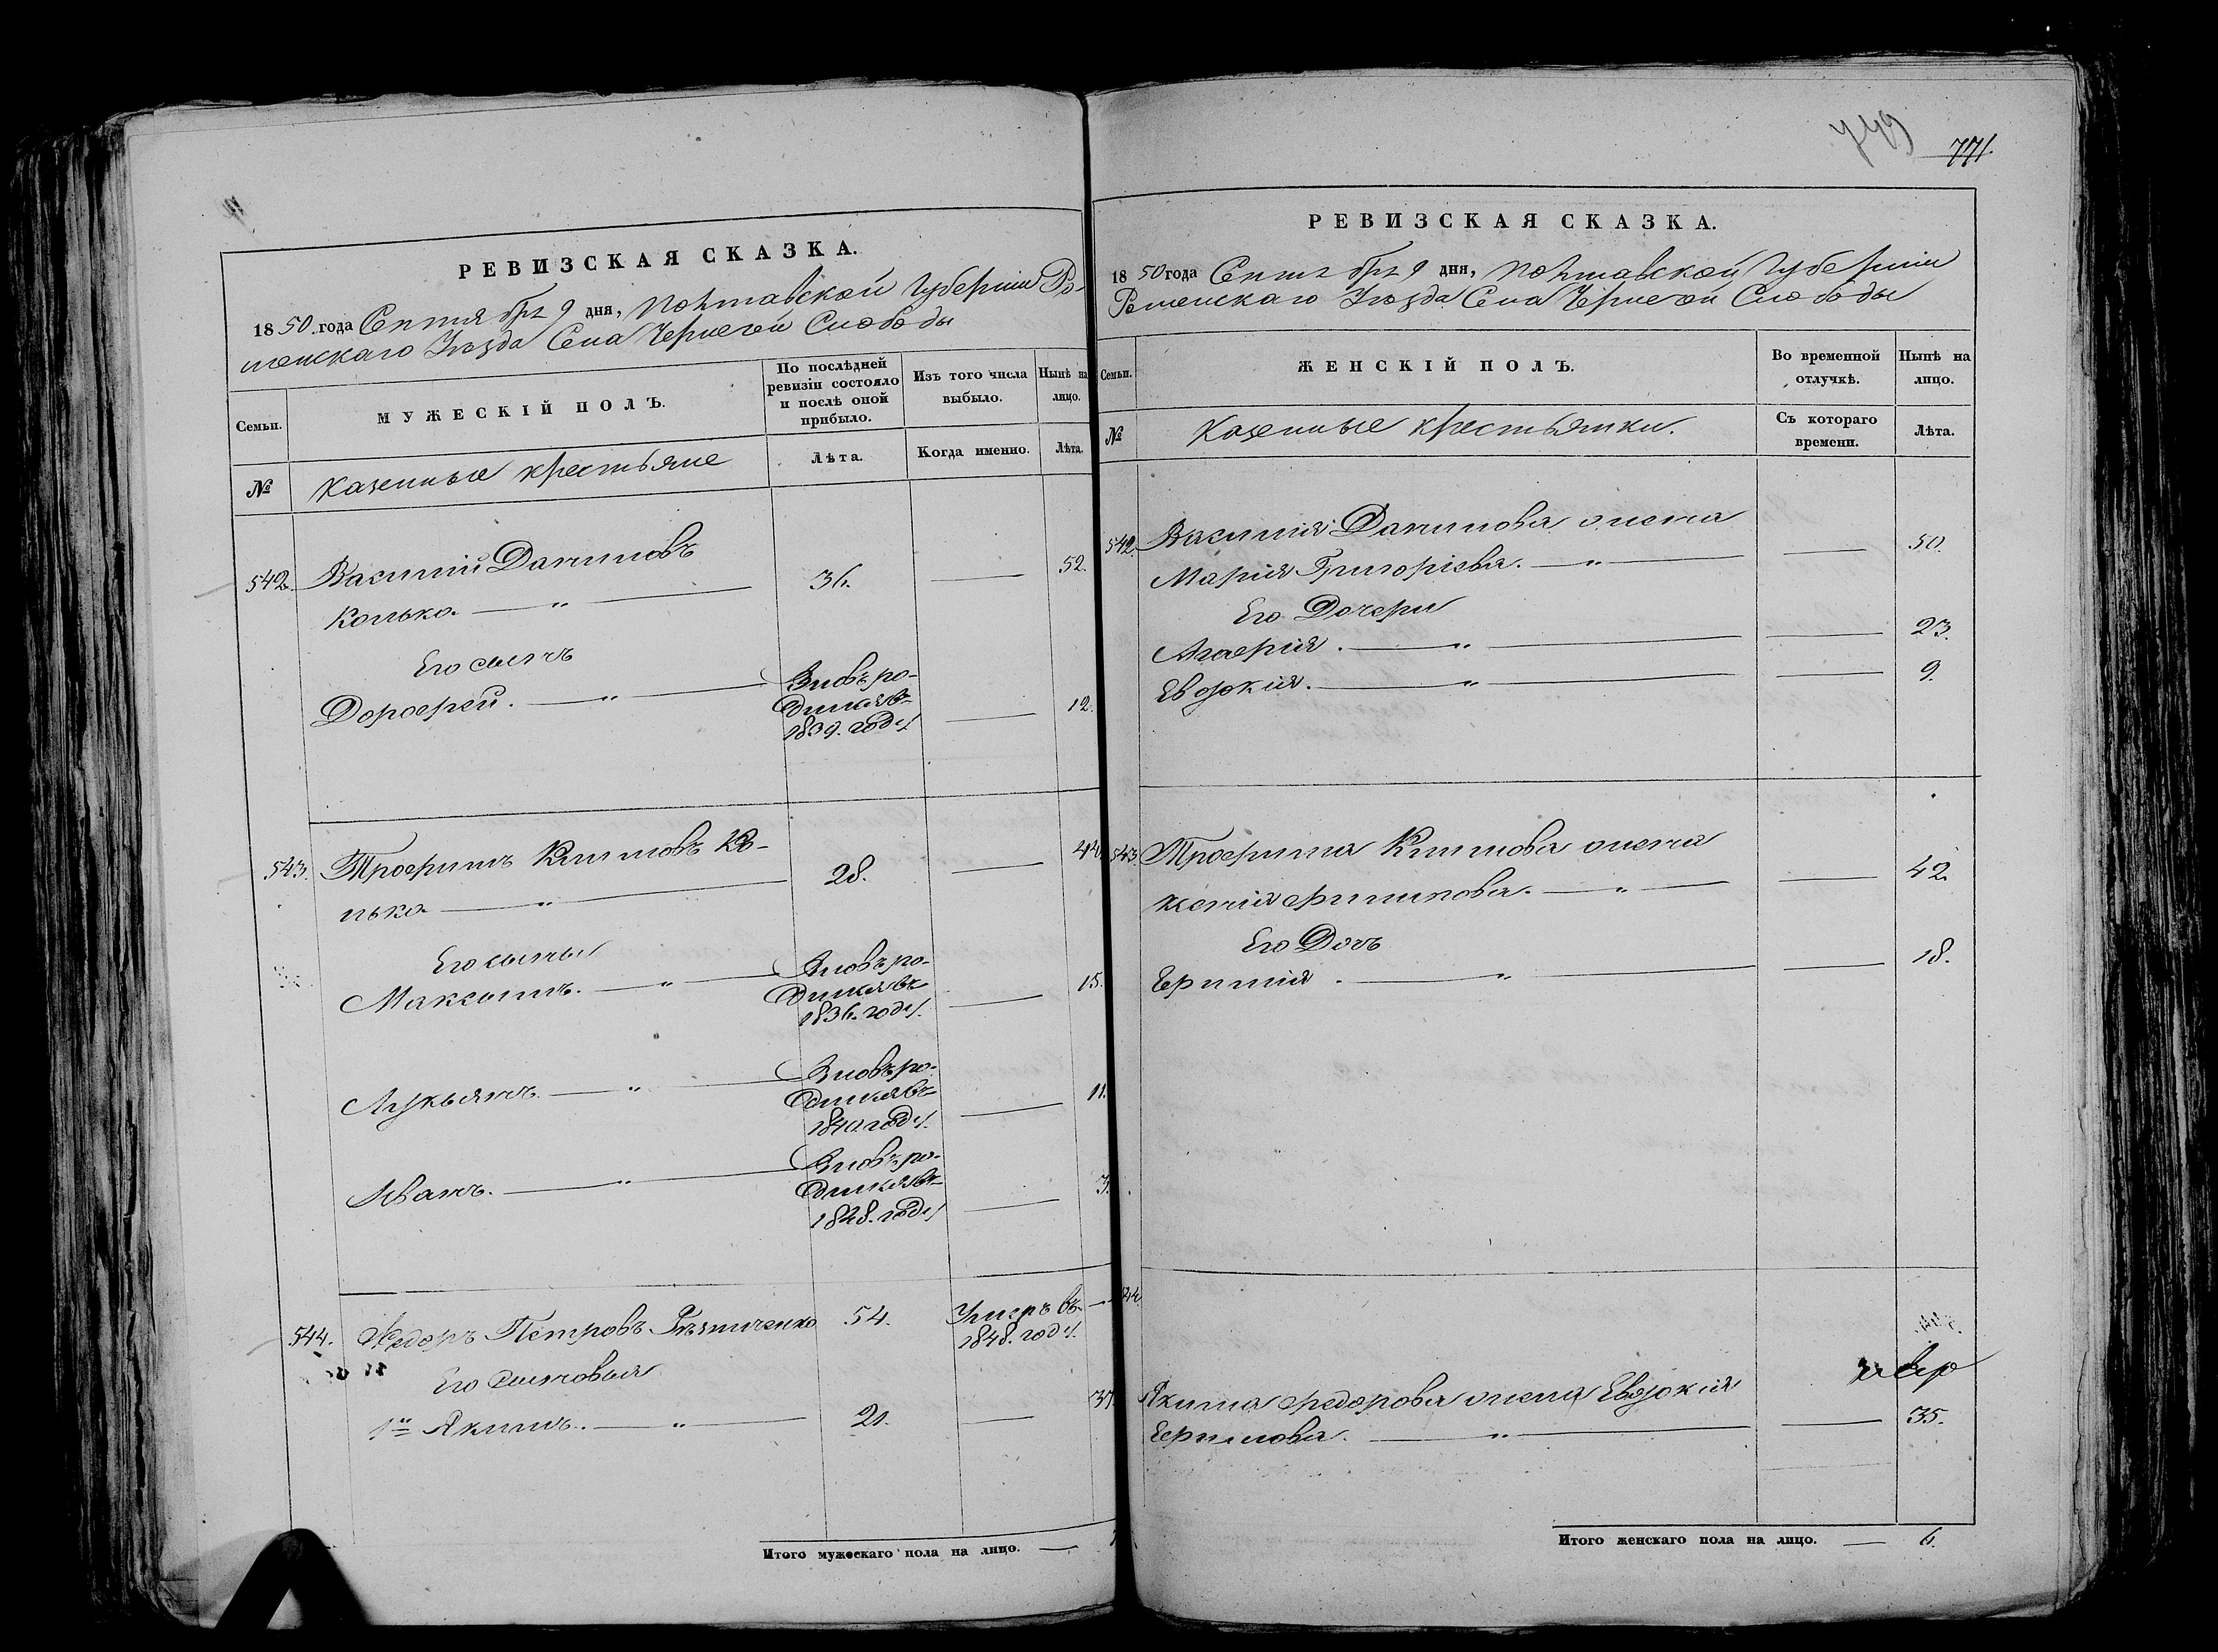 РЕВИЗСКАЯ СКАЗКА.
1850 года Сентября 9 дня, Полтавской Губерніи Ро-
менскаго Уѣзда Села Чернечей Слободы
Семьи.
МУЖЕСКІЙ ПОЛЪ.
По послѣдней ревизіи состояло и послѣ оной прибыло.
Изъ того числа выбыло.
Нынѣ на лицо.
№
Казенные крестьяне
Лѣта.
Когда именно.
Лѣта.
542. Василій Даниловъ
Колько. — „ — 36. — 52.
Его сынъ
Дорофей. — „ — Вновь ро-
дился въ
1839. году — 12.
543. Трофимъ Климовъ Ко-
лько — „ — 28. — 44
Его сыны
Максимъ. — „ — Вновь ро-
дился въ
1836. году. — 15.
Лукьянъ. — „ — Вновь ро-
дился въ
1840. году. — 11.
Иванъ. — „ — Вновь ро-
дился въ
1848. году — 3.
544. Федоръ Петровъ 54. Умеръ въ —
1848. году.
Его сыновья
1й Якимъ. — „ — 21. — 37.
Итого мужескаго пола на лицо. —
749 771.
РЕВИЗСКАЯ СКАЗКА.
1850 года Сентября 9 дня, Полтавской Губерніи
Роменскаго Уѣзда Села Чернечей Слободы
Семьи.
ЖЕНСКІЙ ПОЛЪ.
Во временной отлучкѣ.
Нынѣ на лицо.
№
Казенные крестьянки.
Съ котораго времени.
Лѣта.
542. Василія Данилова жена
Марія Григоріева. — „ — 50.
Его Дочери
Агафія. — „ — 23.
Евдокія. — „ — 9.
543. Трофима Климова жена
Ксенія Филипова. — „ — 42.
Его Дочь
Ефимія. — „ — 18.
544
Якима Федорова жена Евдокія
Ефимова. — „ — 35.
Итого женскаго пола на лицо. — 6.